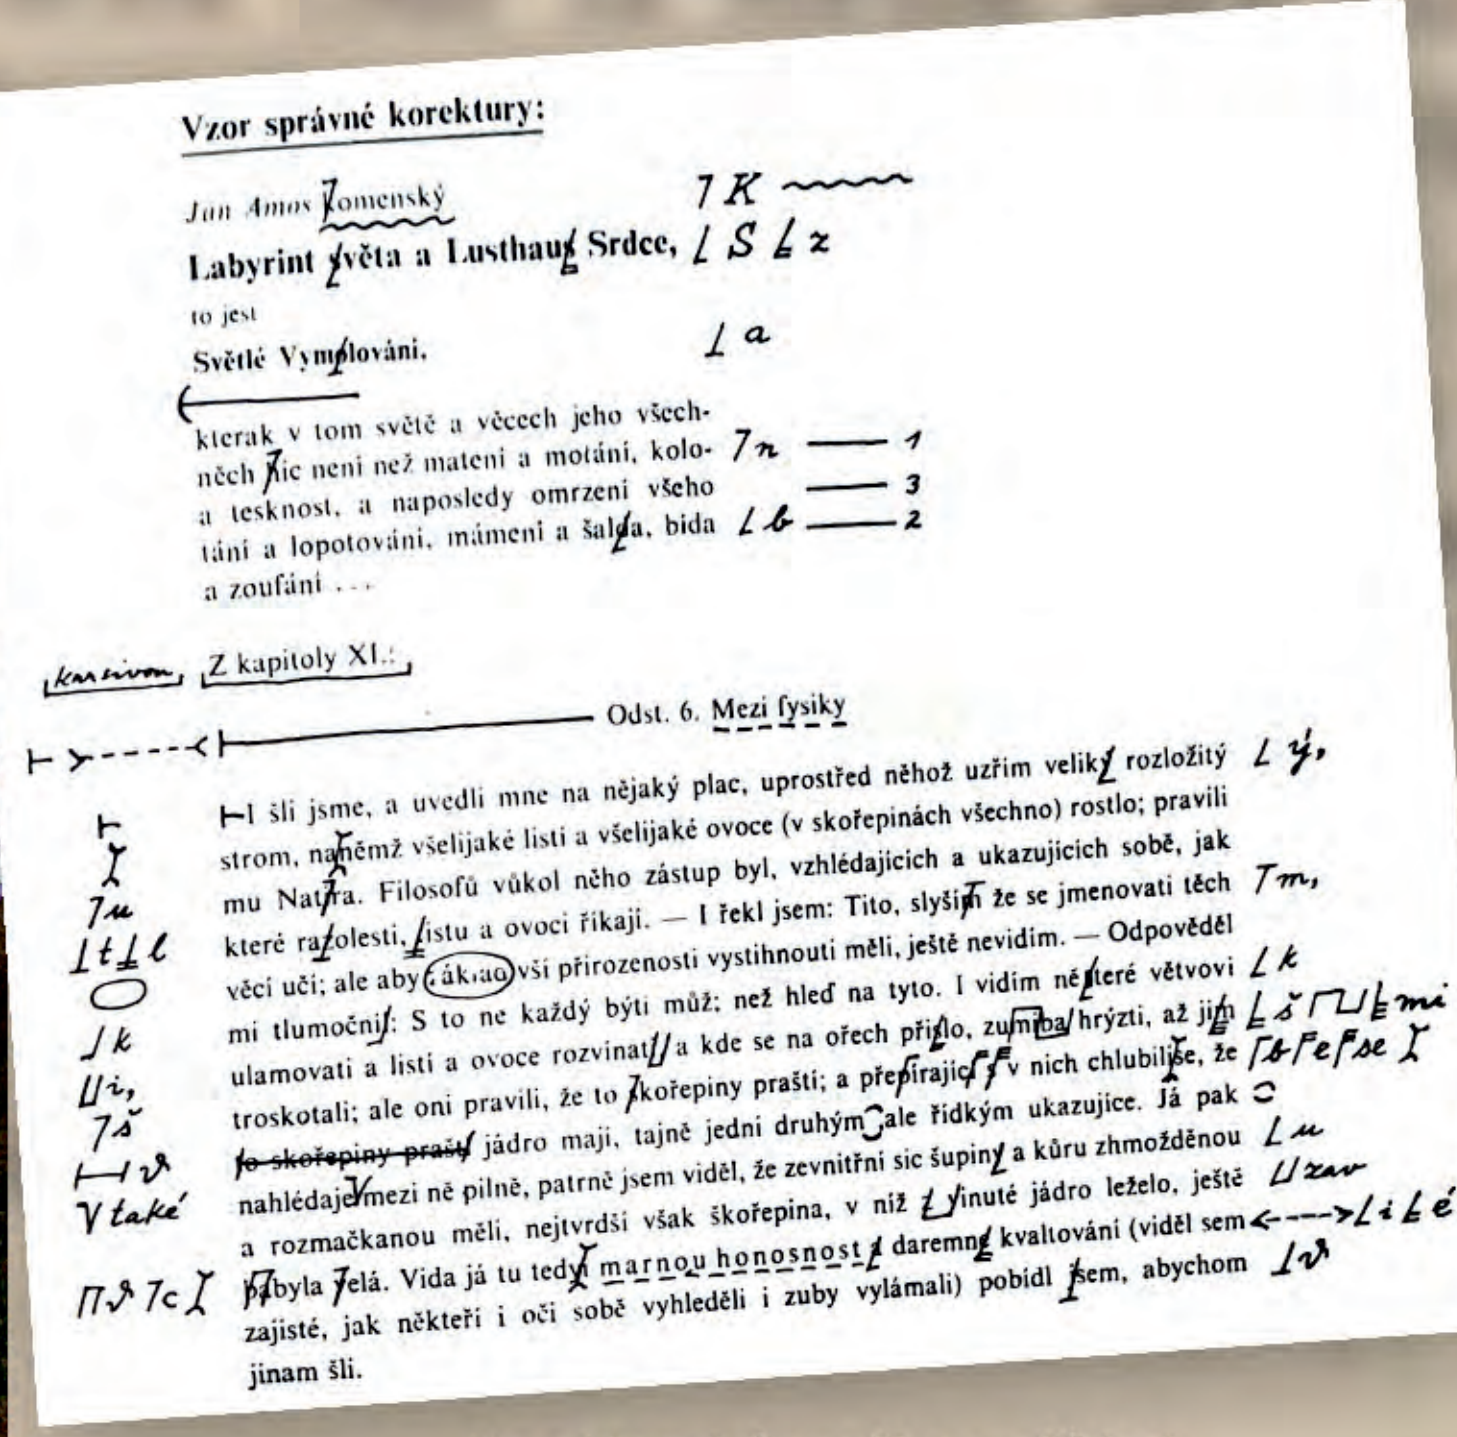 Vzor správné korektury:
Jan Amos Komenský 7 K
Labyrint světa a Lusthaus Srdce, L S L z
to jest
Světlé Vymolování, a
kterak v tom světě a věcech jeho všech-
něch nic není než matení a motání, kolo- 7 n 1
a tesknost, a naposledy omrzení všeho 3
tání a lopotování, mámení a šal a, bída L b 2
a zoufání ...
kursivou, Z kapitoly XI.:
Odst. 6. Mezi fysiky
I šli jsme, a uvedli mne na nějaký plac, uprostřed něhož uzřím velik rozložitý L ý,
strom, naněmž všelijaké listí a všelijaké ovoce (v skořepinách všechno) rostlo; pravili
7 u mu Nat ra. Filosofů vůkol něho zástup byl, vzhlédajících a ukazujících sobě, jak
t l které ra olesti, istu a ovoci říkají. — I řekl jsem: Tito, slyším že se jmenovati těch m,
věcí učí; ale aby vší přirozenosti vystihnouti měli, ještě nevidím. — Odpověděl
k mi tlumoční : S to ne každý býti můž; než hleď na tyto. I vidím ně teré větvoví L k
i, ulamovati a listí a ovoce rozvinat a kde se na ořech při lo, zu ba hrýzti, až ji L š mi
7 š troskotali; ale oni pravili, že to kořepiny praští; a pře írajíc v nich chlubilise, že b e se
to skořepiny praští jádro mají, tajně jedni druhým ale řídkým ukazujíce. Já pak
V také nahlédaje mezi ně pilně, patrně jsem viděl, že zevnitřní sic šupin a kůru zhmožděnou L u
a rozmačkanou měli, nejtvrdší však škořepina, v níž inuté jádro leželo, ještě zav
7 c byla elá. Vida já tu tedy marnou honosnost daremn kvaltování (viděl sem L i L é
zajisté, jak někteří i oči sobě vyhleděli i zuby vylámali) pobídl jsem, abychom
jinam šli.